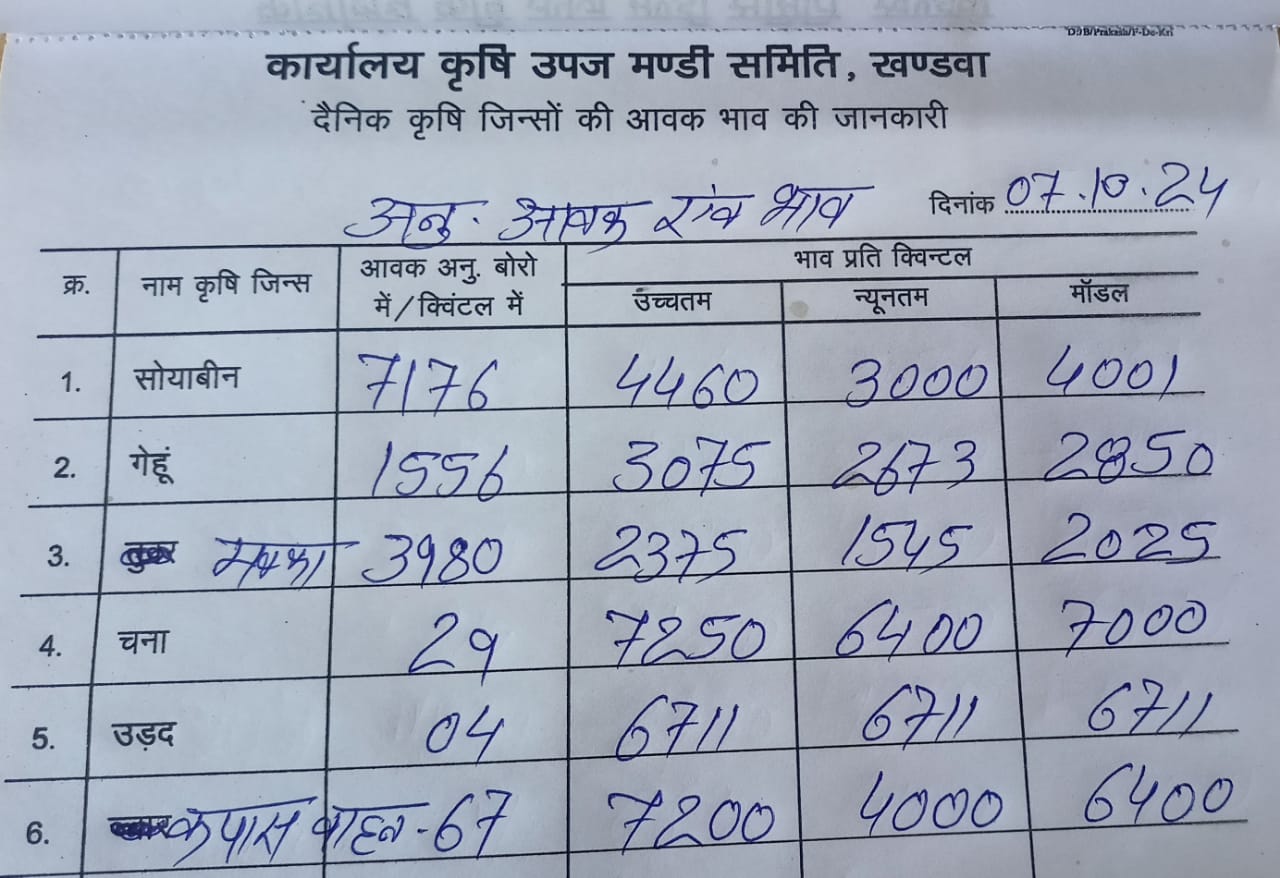 DDB/Prakash/F-Do-Kri
कार्यालय कृषि उपज मण्डी समिति, खण्डवा
दैनिक कृषि जिन्सों की आवक भाव की जानकारी
अनु. आवक एंव भाव दिनांक 07.10.24
क्र. नाम कृषि जिन्स आवक अनु. बोरो में/क्विंटल में भाव प्रति क्विन्टल
उच्चतम न्यूनतम मॉडल
1. सोयाबीन 7176 4460 3000 4001
2. गेहूं 1556 3075 2673 2850
3. मक्का 3980 2375 1545 2025
4. चना 29 7250 6400 7000
5. उड़द 04 6711 6711 6711
6. कपास वाहन-67 7200 4000 6400